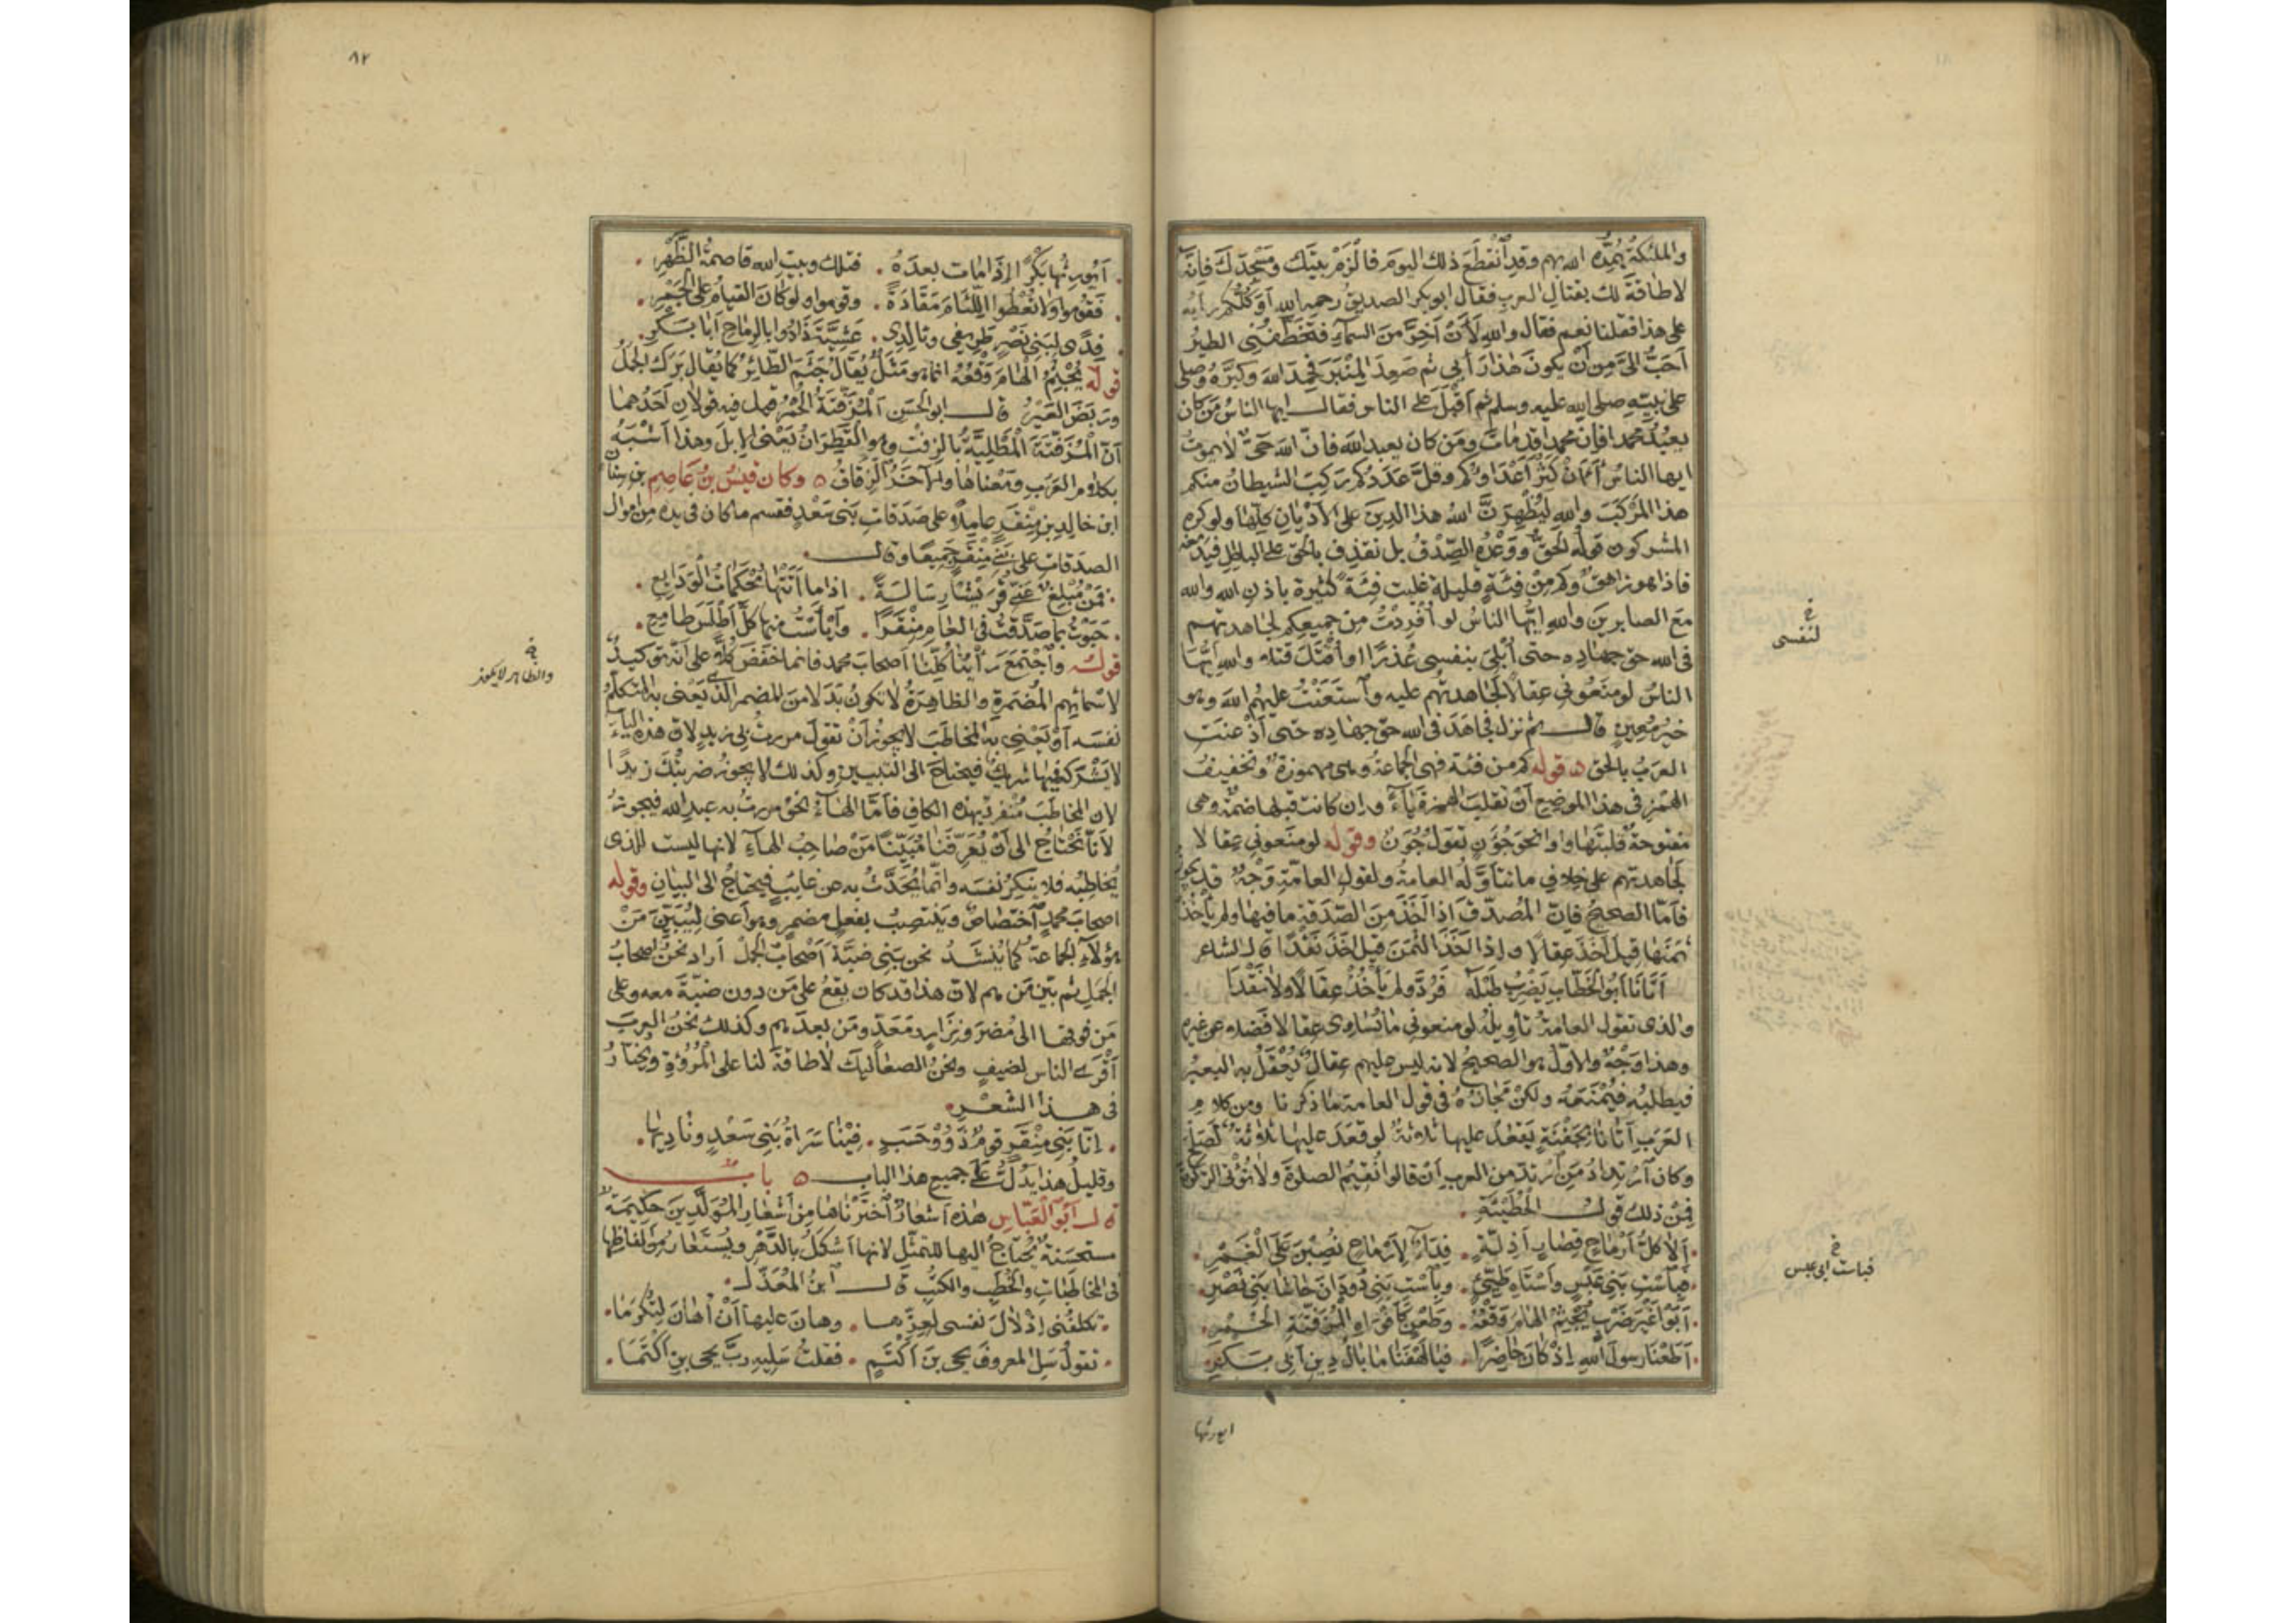 والملئكة يُمِدُّه الله بهم وقد انقطع ذلك اليوم فالزم بيتك ومسجدك فانه
لا طاقة لك بقتال العرب فقال ابو بكر الصديق رحمه الله أوَكلّكم رأيه
على هذا فقلنا نعم فقال والله لَأَنْ أَخِرَّ من السماء فتخطفني الطير
أحبّ الىّ من أن يكون هذا رأيي ثم صعد المنبر فحمد الله وكبّره وصلى
على نبيّه صلى الله عليه وسلم ثم أقبل على الناس فقال ايها الناس من كان
يعبد محمدا فان محمدا قد مات ومن كان يعبد الله فان الله حىّ لا يموت
ايها الناس أئن كثر أعداؤكم وقلّ عددكم ركب الشيطان منكم
هذا المركب والله ليظهرنّ الله هذا الدين على الاديان كلها ولو كره
المشركون قوله الحق ووعده الصدق بل نقذف بالحق على الباطل فيدمغه
فاذا هو زاهق وكم من فئة قليلة غلبت فئة كثيرة باذن الله والله
مع الصابرين والله ايها الناس لو أُفردت من جميعكم لجاهدتهم
فى الله حق جهاده حتى أبلى بنفسى عذرا او أقتل قتلا والله ايها
الناس لو منعونى عقالا لجاهدتهم عليه واستعنت عليهم الله وهو
خير معين قال ثم نزل فجاهد فى الله حق جهاده حتى أذعنت
العرب بالحق ٥ قوله كم من فئة فهى الجماعة وهى مهموزة وتخفيف
الهمز فى هذا الموضع أن تقلب الهمزة ياء وان كانت قبلها ضمة وهى
مفتوحة قلبتها واوا نحو جؤن تقول جون وقوله لو منعونى عقالا
لجاهدتهم على خلاف ما تتأوّله العامة ولقول العامة وجه قد يجوز
فأما الصحيح فان المصدّق اذا أخذ من الصدقة ما فيها ولم يأخذ
ثمنها قيل أخذ عقالا واذا أخذ الثمن قيل أخذ نقدا قال الشاعر
أتانا ابو الخطاب يضرب طبله فردّ ولم يأخذ عقالا ولا نقدا
والذى تقول العامة تأويله لو منعونى ما يساوى عقالا فضلا عن غيره
وهذا وجه والاول هو الصحيح لانه ليس عليهم عقال يعقل به البعير
فيطلبه فيمنعه ولكن مجازه فى قول العامة ما ذكرنا ومن كلام
العرب أتانا بجفنة يقعد عليها ثلاثة لو قعد عليها ثلاثة لصلح
وكان ارتداد من ارتد من العرب أن قالوا نقيم الصلوة ولا نؤتى الزكوة
فمن ذلك قول الحطيئة
ألا كل أرماح قصار أذلّة . فداء لارماح نصبن على الغمر
فباست بنى عبس وأستاه طيئ . وباست بنى دودان حاشا بنى نصر
أبوا غير ضرب يجثم الهام وقعه . وطعن كأفواه المزفتة الحمر
أطعنا رسول الله اذ كان حاضرا . فيا لهفتا ما بال دين أبى بكر
ايورثها
خ
لنفسى
خ
فباست ابى عبس
٨٢
أيورثها بكرا اذا مات بعده . فتلك وبيت الله قاصمة الظهر
فقوموا ولا تعطوا اللئام مقادة . وقوموا ولو كان القيام على الجمر
فدى لبنى نصر طريفى وتالدى . عشية ذادوا بالرماح أبا بكر
قوله يجثم الهام وقعه انما هو مثل يقال جثم الطائر كما يقال برك الجمل
وربض البعير قال ابو الحسن المزفتة الحمر قيل فيه قولان احدهما
أن المزفتة المطلية بالزفت وهو القطران يعنى الابل وهذا أشبه
بكلام العرب ومعناها والآخر الزقاق ٥ وكان قيس بن عاصم بن سنان
ابن خالد بن منقر عاملا على صدقات بنى سعد فقسم ما كان فى يده من اموال
الصدقات على بنى منقر جميعا وقال
فمن مبلغ عنى قريشا رسالة . اذا ما أتتها محكمات الودايع
حبوت بما صدّقت فى العام منقرا . وأيأست منها كل أطلس طامع
قوله واجتمع رأينا كلّنا اصحاب محمد فانما خفض كلا على أنه توكيد
لاسمائهم المضمرة والظاهرة لا تكون بدلا من المضمر الذى يعنى به المتكلم
نفسه أو يعنى به المخاطب لا يجوز أن تقول مررت بى زيد لان هذه الياء
لا يشركه فيها شريك فيحتاج الى التبيين وكذلك لا يجوز ضربتك زيدا
لان المخاطب منفرد بهذه الكاف فأما الهاء نحو مررت به عبد الله فيجوز
لأنا نحتاج الى أن يعرفنا مبيّنا من صاحب الهاء لانها ليست للذى
يخاطبه فلا ينكر نفسه وانما يحدّث به عن غايب فيحتاج الى البيان وقوله
اصحاب محمد اختصاص وينتصب بفعل مضمر وهو أعنى ليبيّن من
هؤلاء الجماعة كما ينشد نحن بنى ضبة أصحاب الجمل أراد نحن اصحاب
الجمل ثم بيّن من هم لان هذا قد كان يقع على من دون ضبة معه وعلى
من فوقها الى مضر ونزار ومعد ومن بعدهم وكذلك نحن العرب
أقرى الناس لضيف ونحن الصعاليك لا طاقة لنا على المروة ويختار
فى هذا الشعر
انا بنى منقر قوم ذوو حسب . فينا سراة بنى سعد وناديها
وقليل هذا يدلّ على جميع هذا الباب ٥ باب
قال أبو العباس هذه أشعار اخترناها من أشعار المولدين حكيمة
مستحسنة يحتاج اليها للتمثل لانها أشكل بالدهر ويستعار من الفاظها
فى المخاطبات والخطب والكتب قال ابن المعذل
تكلفنى اذلال نفسى لعزها . وهان عليها أن أهان لتكرما
تقول سل المعروف يحيى بن أكثم . فقلت سليه رب يحيى بن أكثما
خ
والظاهر لا يكون